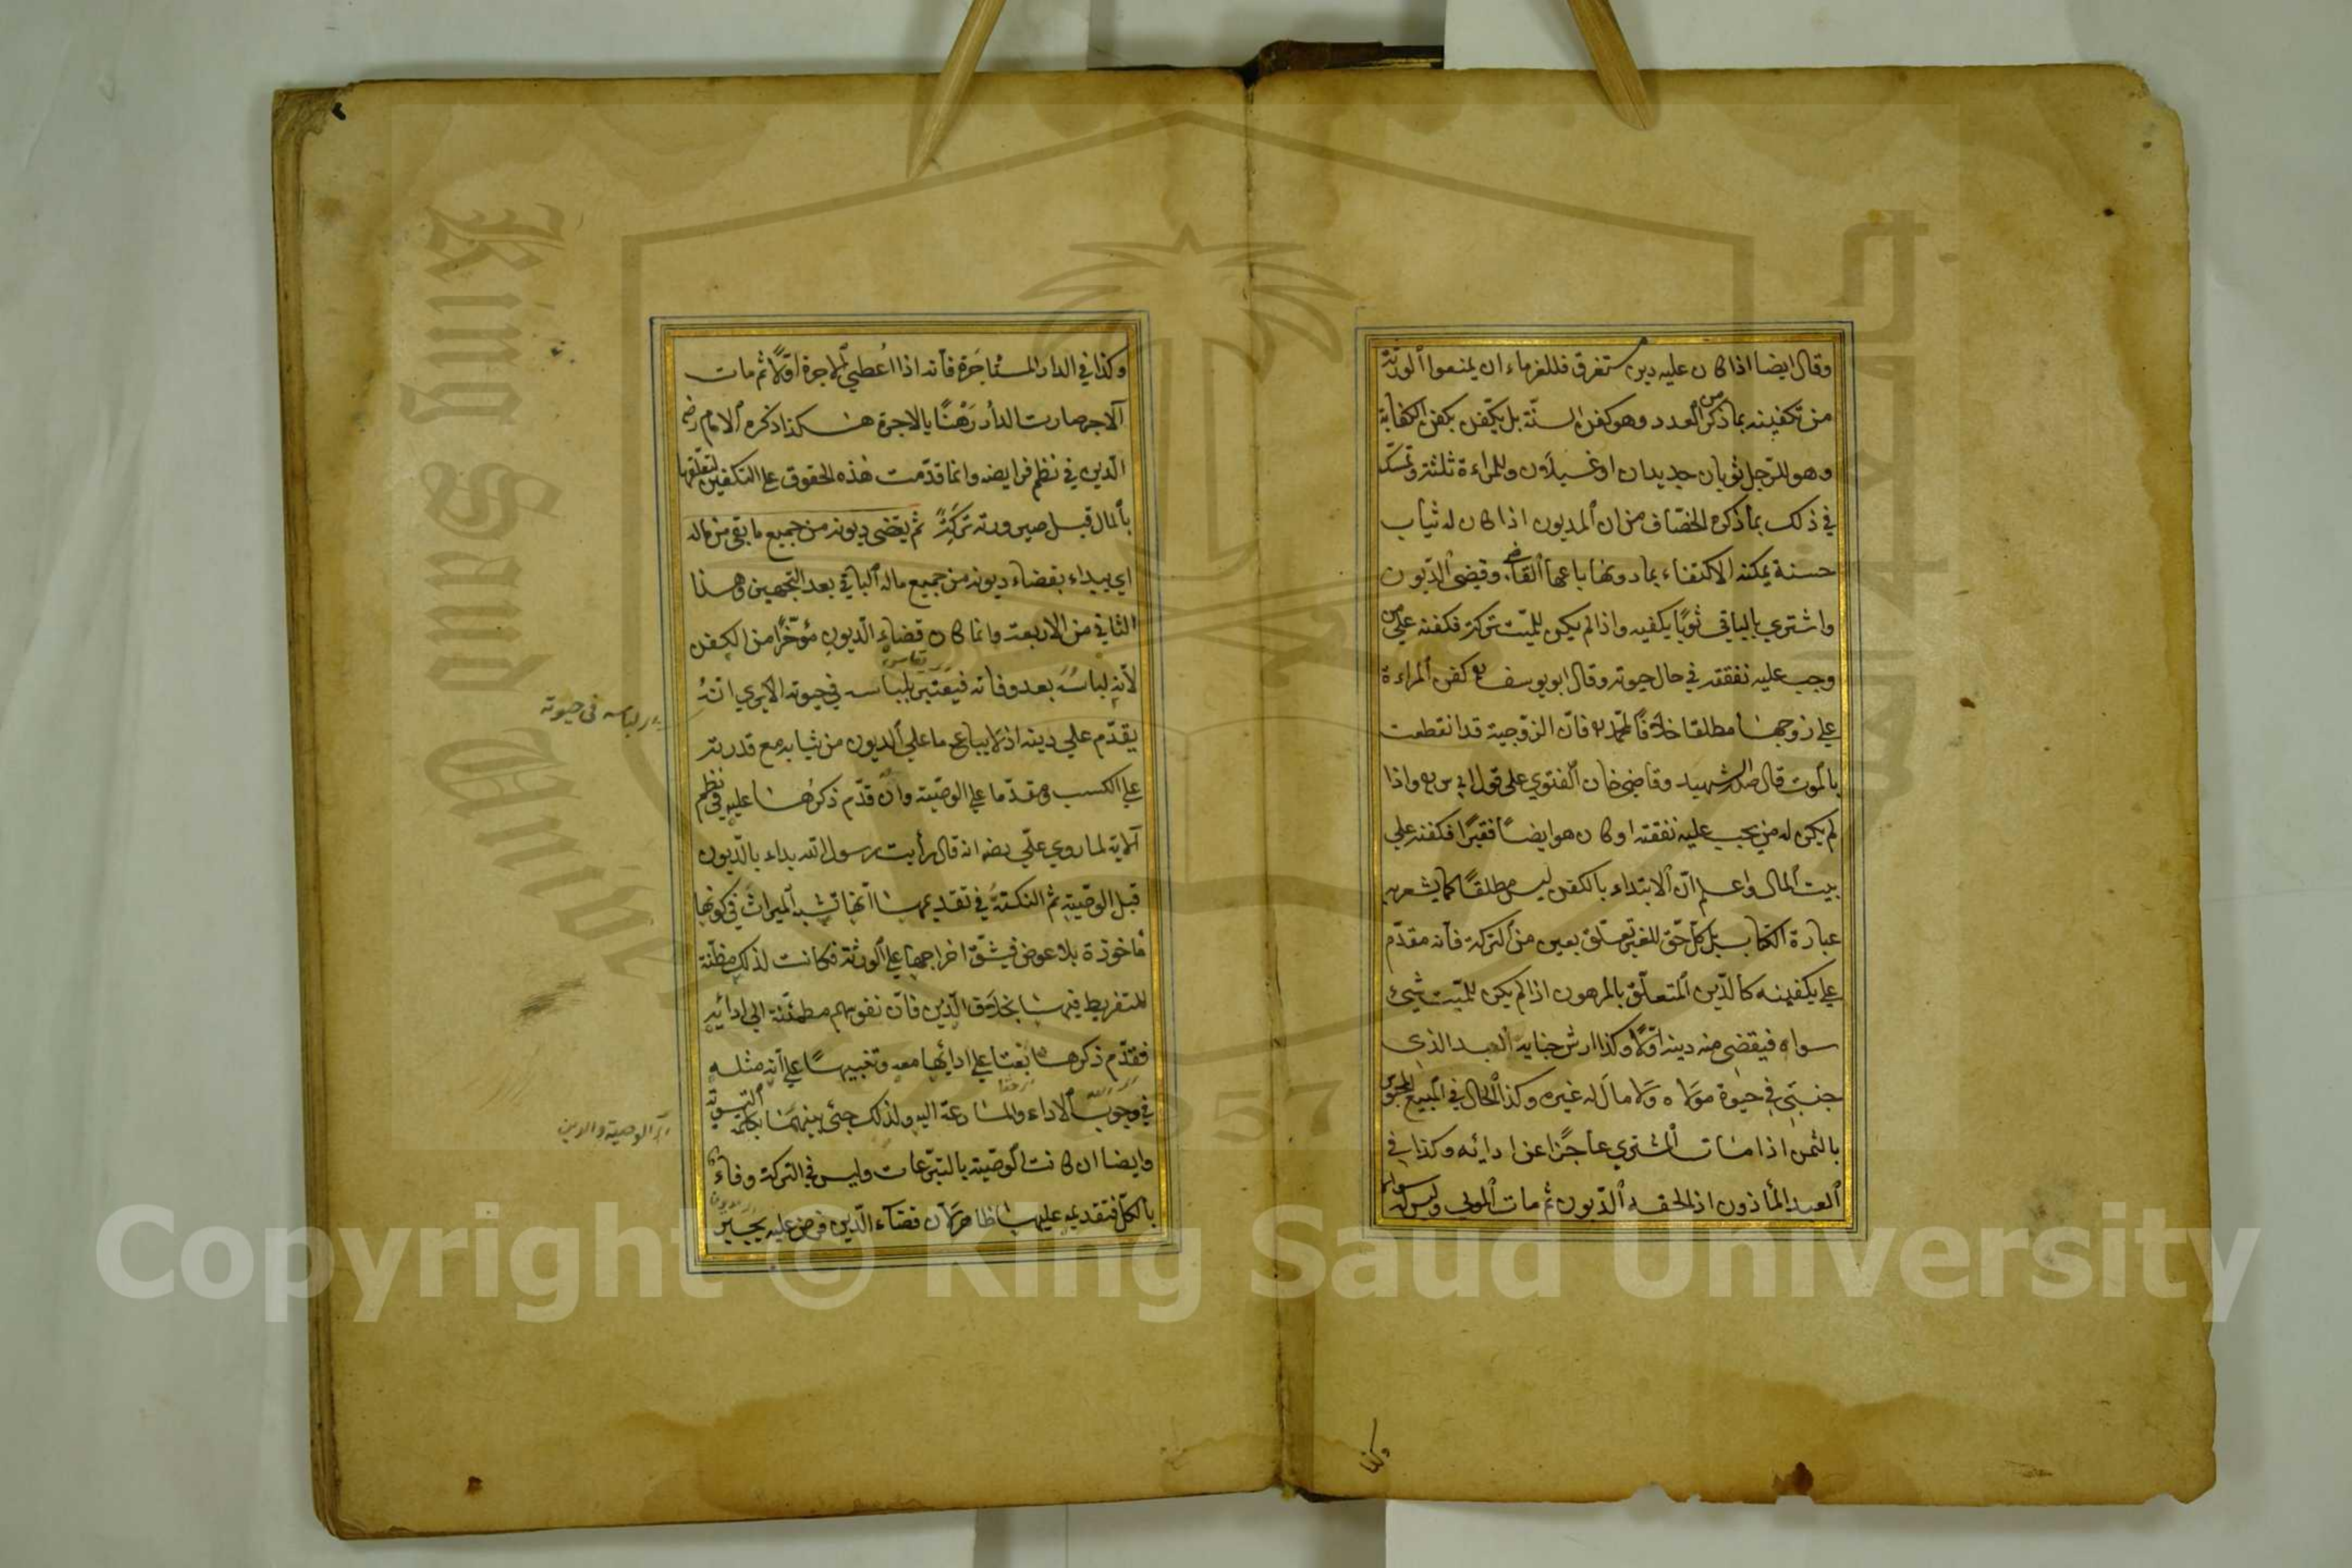 وقال ايضا اذا كان عليه دين مستغرق فللغرماء ان يمنعوا الورثة
من تكفينه بما ذكر من العدد وهو كفن السنّة بل يكفّن بكفن الكفاية
وهو للرّجل ثوبان جديدان او غسيلان وللمراءة ثلثة وتمسّك
في ذلك بما ذكره الخصّاف من ان المديون اذا كان له ثياب
حسنة يمكنه الاكتفاء بما دونها باعها القاضي وقضى الدّيون
واشتري بالباقي ثوبًا يكفيه واذا لم يكن للميّت تركة فكفنه علي من
وجب عليه نفقته في حال حيوته وقال ابو يوسف كفن المراءة
علي زوجها مطلقا خلافًا لمحمّد فانّ الزوجية قد انقطعت
بالموت قال صدر الشهيد وقاضي خان الفتوي على قول ابي س واذا
لم يكن له من يجب عليه نفقته او كان هو ايضًا فقيرًا فكفنه علي
بيت المال واعلم انّ الابتداء بالكفن ليس مطلقًا كما يشعر به
عبارة الكتاب بل كلّ حقّ للغير تعلّق بعين من التركة فانه مقدّم
علي تكفينه كالدّين المتعلّق بالمرهون اذا لم يكن للميّت شيئ
سواه فيقضي منه دينه اوّلًا وكذا ارش جناية العبد الذي
جني في حيوة مولاه ولا مال له غيره وكذا الحال في المبيع المحبوس
بالثمن اذا مات المشتري عاجزًا عن ادائه وكذا في
العبد المأذون اذا لحقه الدّيون ثم مات المولي وليس له سواه
وكذا
وكذا في الدار المستأجرة فانه اذا اعطي الاجرة اوّلًا ثم مات
الآجر صارت الدار رهنًا بالاجرة هكذا ذكره الامام رضي
الدّين في نظم فرايضه وانما قدّمت هذه الحقوق علي التكفين لتعلّقها
بالمال قبل صيرورته تركةً ثم يقضي ديونه من جميع ما بقي من ماله
اي يبداء بقضاء ديونه من جميع ماله الباقي بعد التجهيز وهذا
الثاني من الاربعة وانما كان قضاء الدّيون مؤخّرًا من الكفن
لانّه لباسه بعد وفاته فيعتبر بلباسه في حيوته الا يري انّه
يقدّم علي دينه اذ لا يباع ما علي المديون من ثيابه مع قدرته
علي الكسب ومقدّما علي الوصيّة وان قدّم ذكرها عليه في نظم
الآية لما روي عن علي رضه انه قال رأيت رسول الله بداء بالدّيون
قبل الوصيّة ثم النكتة في تقديمها انّها تشبه الميراث في كونها
مأخوذة بلا عوض فيشقّ اخراجها علي الورثة فكانت لذلك مظنّة
للتفريط فيها بخلاف الدّين فانّ نفوسهم مطمئنّة الي ادائه
فقدّم ذكرها بعثا علي ادائها معه وتنبيهًا علي انّه مثله
في وجوب الاداء والمسارعة اليه ولذلك جئ بينهما بكلمة التسوية
وايضا ان كانت الوصيّة بالتبرّعات وليس في التركة وفاء
بالكلّ فتقديمه عليها ظاهر لانّ قضاء الدّين فرض عليه يجبر
لباسه في حيوته
الوصية والدين
Copyright © King Saud University
King Saud University
1957